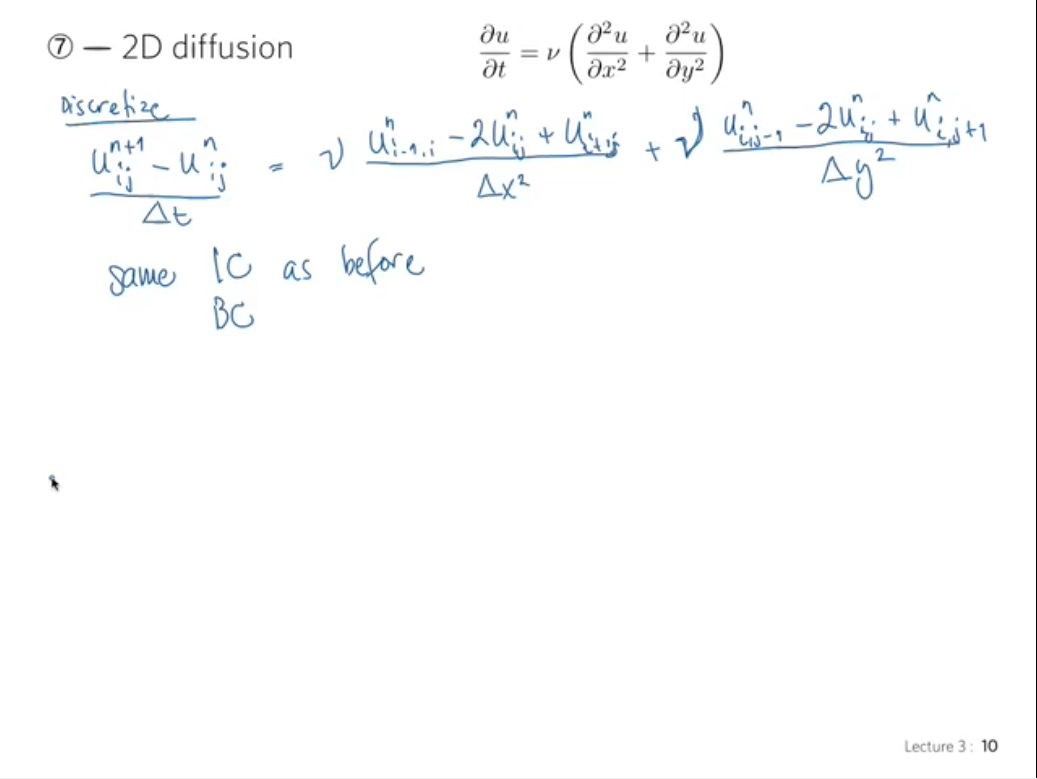 ⑦ — 2D diffusion
∂u/∂t = ν (∂²u/∂x² + ∂²u/∂y²)
Discretize
(u^{n+1}_{ij} − u^n_{ij})/Δt = ν (u^n_{i−1,i} − 2u^n_{ij} + u^n_{i+1,j})/Δx² + ν (u^n_{i,j−1} − 2u^n_{ij} + u^n_{i,j+1})/Δy²
same IC as before
BC
Lecture 3 : 10